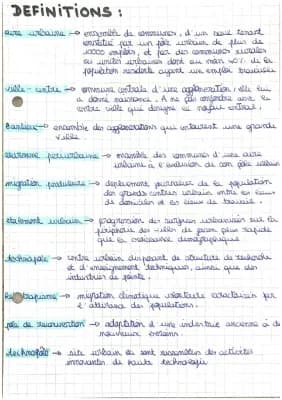 DEFINITIONS :
aire urbaine → ensemble de communes, d'un seul tenant
constitué par un pôle urbain de plus de
10000 emplois, et par des communes rurales
ou unités urbaines dont au moin 40% de la
population résidente ayant un emploi travaille
ville-centre → commune centrale d'une agglomération, elle lui
a donné naissance. A ne pas confondre avec le
centre ville qui désigne le noyau central.
Banlieue → ensemble des agglomérations qui entourent une grande
ville
couronne périurbaine → ensemble des communes d'une aire
urbaine à l'exclusion de son pôle urbain
migration pendulaire → déplacement journalier de la population
des grands centres urbains entre les lieux
de domiciles et les lieux de travail.
étalement urbain → progression des surfaces urbanisées sur la
périphérie des villes de façon plus rapide
que la croissance démographique
technopole → centre urbain disposant de structure de recherche
et d'enseignement techniques, ainsi que des
industries de pointe.
→ migration climatique volontaire caractérisée par
l'attirance des populations.
pôle de reconversion → adaptation d'une industrie ancienne à de
nouveaux besoins.
technopôle → site urbain où sont rassemblées des activités
innovantes de haute technologie